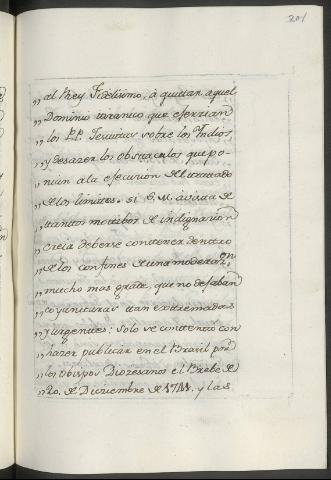 201
„ al Rey Fidelisimo, á quitar aquel
„ Dominio tiranico que exersian
„ los PP. Jesuitas sobre los Indios
„ y desazer los obstaculos que po-
„ nian a la esecusion del tratado
„ de los limites. si S. M. á vista de
„ tantos motibos de indignacion
„ creia deberse contener dentro
„ de los confines de una moderaz.on
„ mucho mas grate, que no desaban
„ coyunturas tan extremadas
„ y urgentes: Solo se contento con
„ hazer publicar en el Brasil por
„ los obispos Diozesanos el Brebe de
„ 20. de Diziembre de 1741. y las